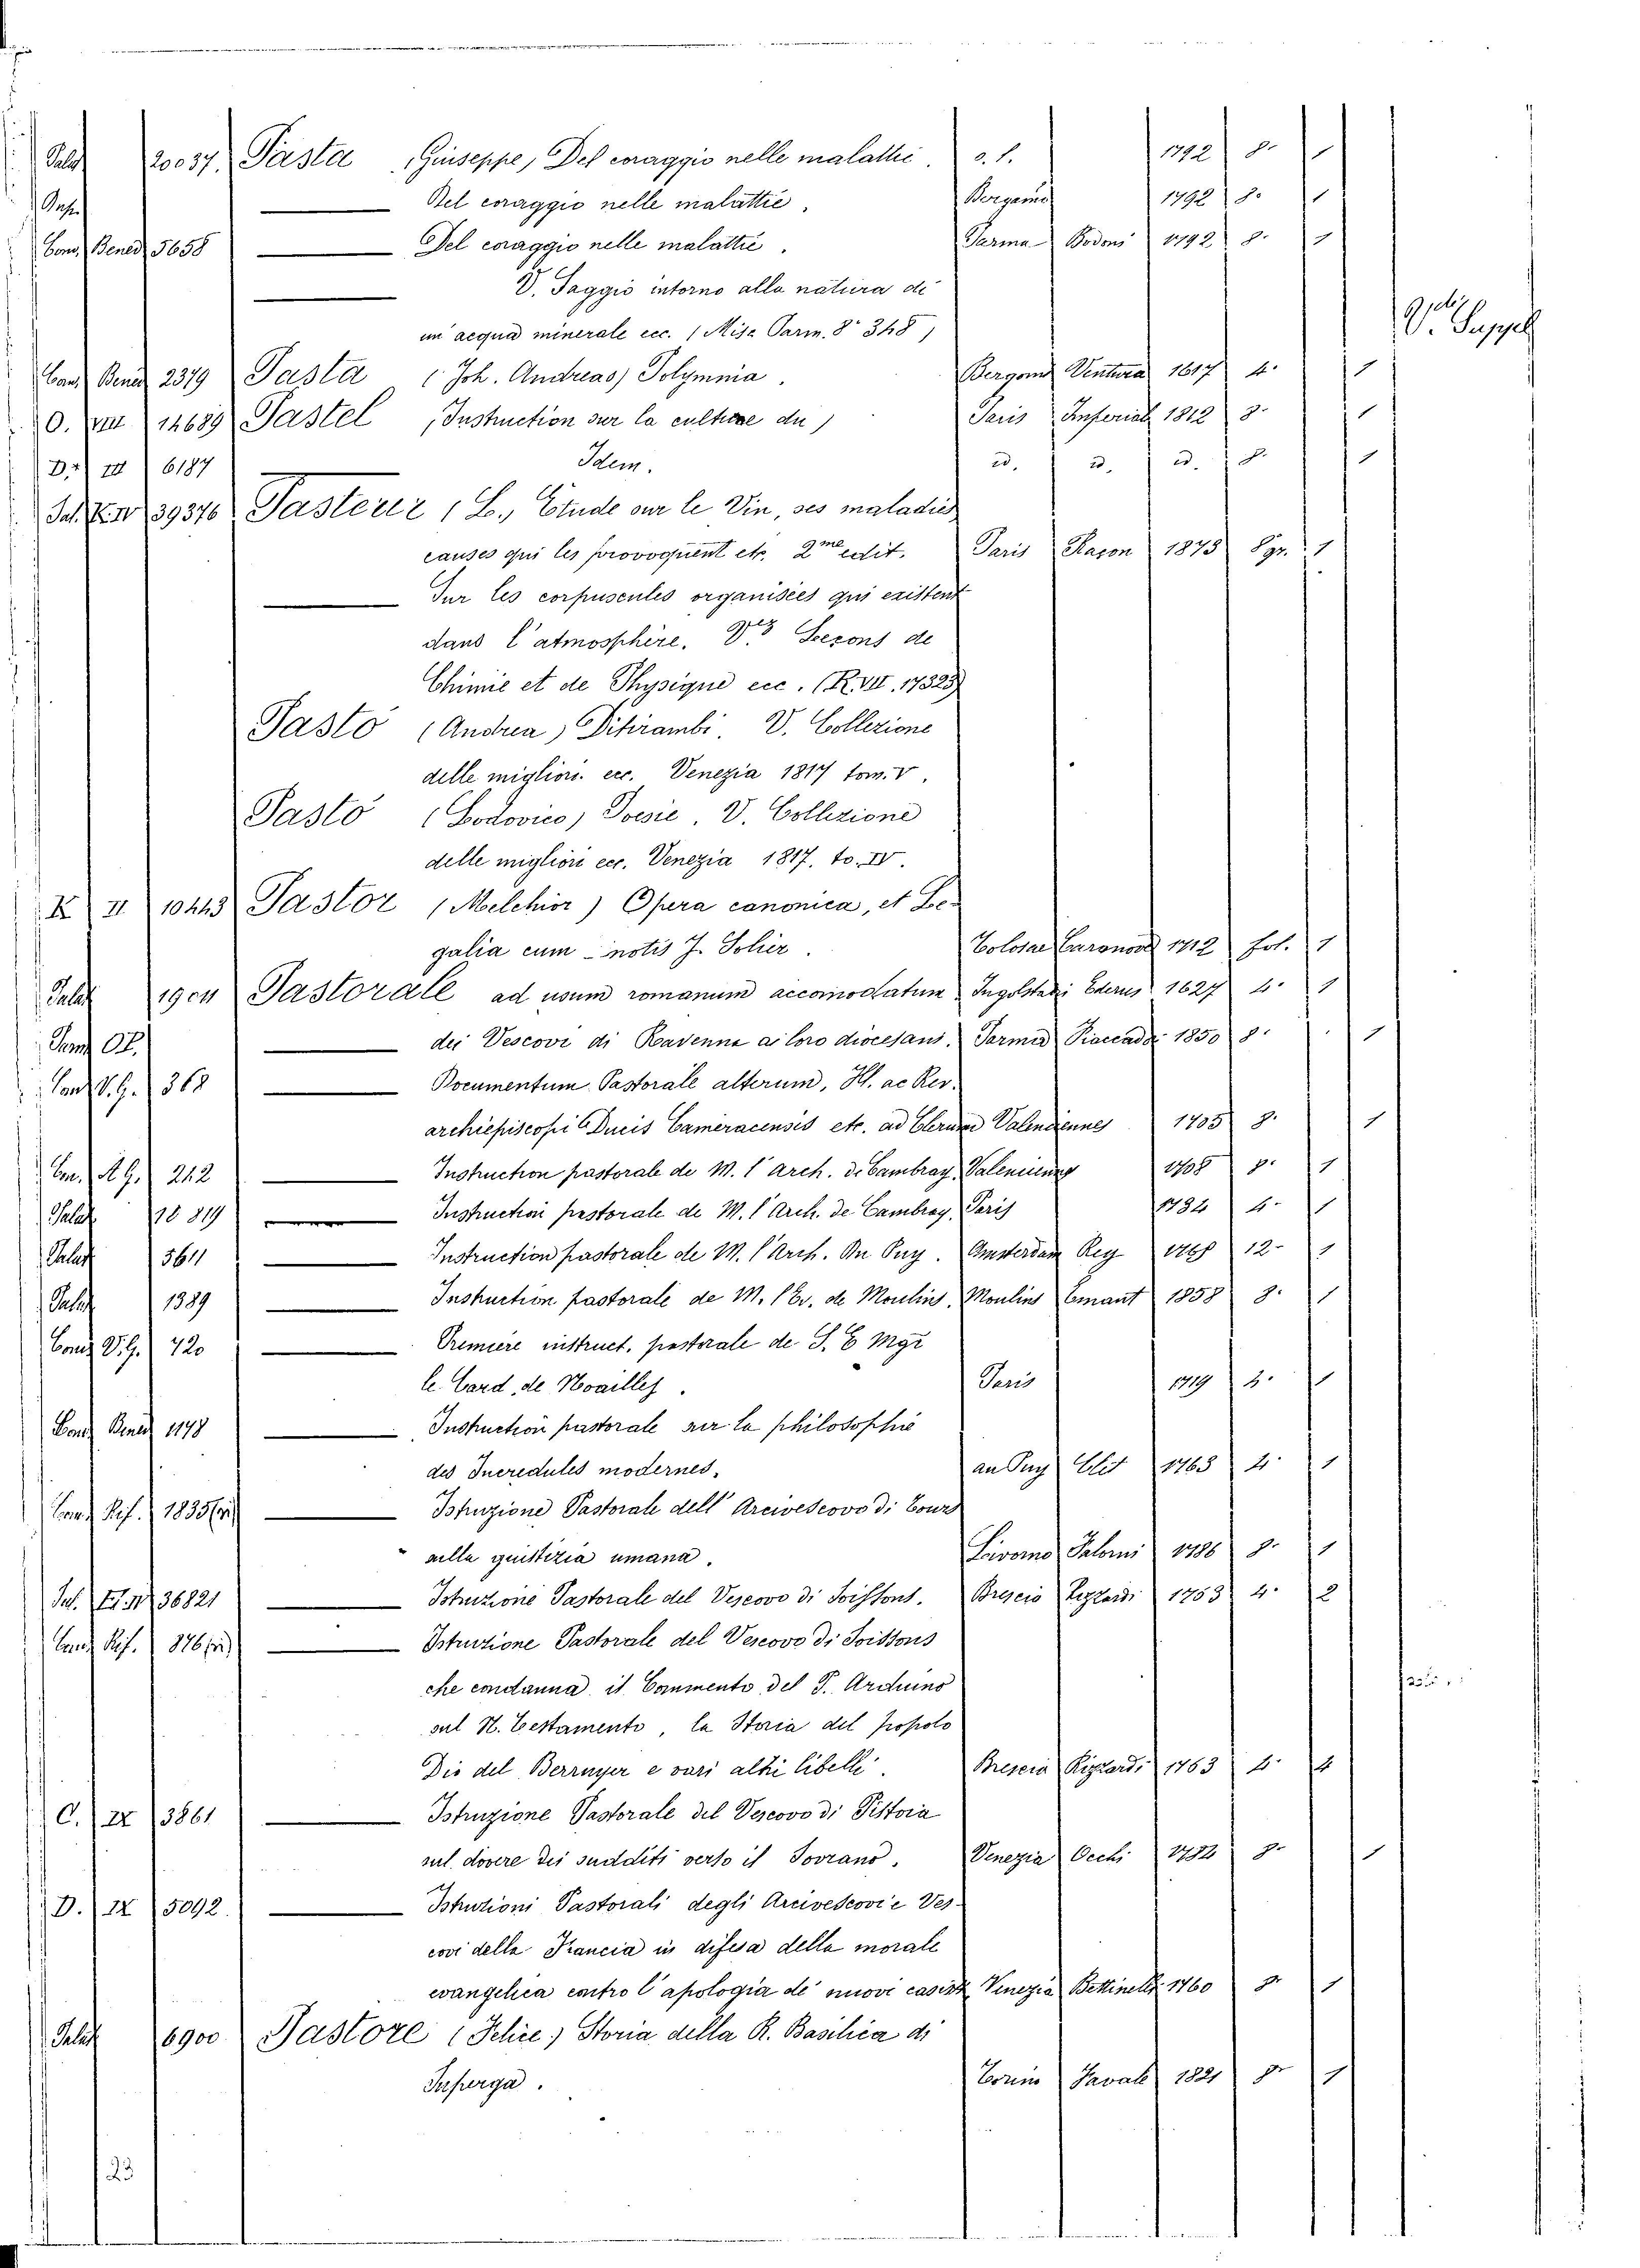 Palat 20037. Pasta (Giuseppe) Del coraggio nelle malattie. s. l. 1792 8° 1
Del coraggio nelle malattie. Bergamo 1792 8° 1
Bened 5658 Del coraggio nelle malattie. Parma Bodoni 1792 8° 1
V. Saggio intorno alla natura di
un'acqua minerale ecc. (Misc. Parm. 8° 348)
V. Suppel
Bened 2379 Pasta (Joh. Andreas) Polymnia. Bergomi Ventura 1617 4° 1
O. VIII 14689 Pastel (Instruction sur la culture du) Paris Imperial 1812 8° 1
D.2 III 6187 Idem. id. id. id. 8° 1
39376 Pasteur (L.) Etude sur le Vin, ses maladies
causes qui les provoquent etc. 2me edit. Paris Raçon 1873 8gr. 1
Sur les corpuscules organisées qui existent
dans l'atmosphère. V. Leçons de
Chimie et de Physique ecc. (R. VII. 17325)
Pastò (Andrea) Ditirambi. V. Collezione
delle migliori ecc. Venezia 1817 tom. V.
Pastò (Lodovico) Poesie. V. Collezione
delle migliori ecc. Venezia 1817. to. IV.
K II 10443 Pastor (Melchior) Opera canonica, et Le-
galia cum notis J. Solier. Tolosae Caranove 1712 fol. 1
Palat 19011 Pastorale ad usum romanum accomodatum Ingolstadi Ederus 1627 4° 1
dei Vescovi di Ravenna ai loro diocesani. Parma Fiaccadori 1850 8° 1
V. G. 368 Documentum Pastorale alterum, Ill. ac Rev.
archiepiscopi Ducis Cameracensis etc. ad Clerum Valenciennes 1705 8° 1
242 Instruction pastorale de M. l'arch. de Cambray. Valencienne 1708 8° 1
Palat 18819 Instruction pastorale de M. l'Arch. de Cambray. Paris 1734 4° 1
Palat 5611 Instruction pastorale de M. l'Arch. Du Puy. Amsterdam Rey 12° 1
Palat 1389 Instruction pastorale de M. l'Ev. de Moulins. Moulins Enant 1858 8° 1
V. G. 720 Première instruct. pastorale de S. E. Mgr
le Card. de Noailles. Paris 1719 4° 1
Bened 1178 Instruction pastorale sur la philosophie
des Incredules modernes. au Puy Clet 1763 4° 1
Rif. 1835 Istruzione Pastorale dell'Arcivescovo di Tours
sulla giustizia umana. Livorno Falorni 1786 8° 1
36821 Istruzione Pastorale del Vescovo di Soissons. Brescia Rizzardi 1763 4° 2
Rif. 876 Istruzione Pastorale del Vescovo di Soissons
che condanna il Commento del P. Arduino
sul N. Testamento, la Storia del popolo
Dio del Berruyer e vari altri libelli. Brescia Rizzardi 1763 4° 4
C. IX 3861 Istruzione Pastorale del Vescovo di Pistoia
sul dovere dei sudditi verso il Sovrano. Venezia Occhi 1784 8° 1
D. IX 5092. Istruzioni Pastorali degli Arcivescovi e Ves-
covi della Francia in difesa della morale
evangelica contro l'apologia de' nuovi casisti Venezia Bettinelli 1760 8° 1
Palat 6900 Pastore (Felice) Storia della R. Basilica di
Superga. Torino Favale 1821 8° 1
23